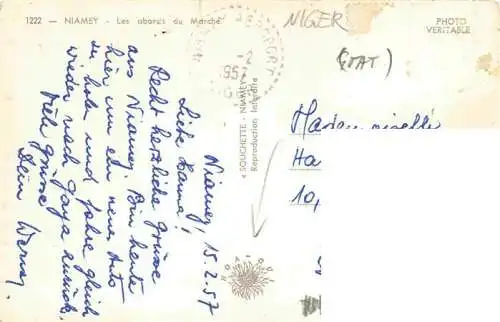 1222 — NIAMEY - Les abords du Marché
NIGER
PHOTO
VERITABLE
Niamey, 15.2.57
Liebe Hanna!
Recht herzliche Grüsse
aus Niamey. Bin heute
hier um ein neues Auto
zu holen und fahre gleich
wieder nach Gaya zurück.
Viele Grüsse
Dein Werner.
« SOUCHETTE - NIAMEY »
Reproduction Interdite
Mademoiselle
Ha
10,